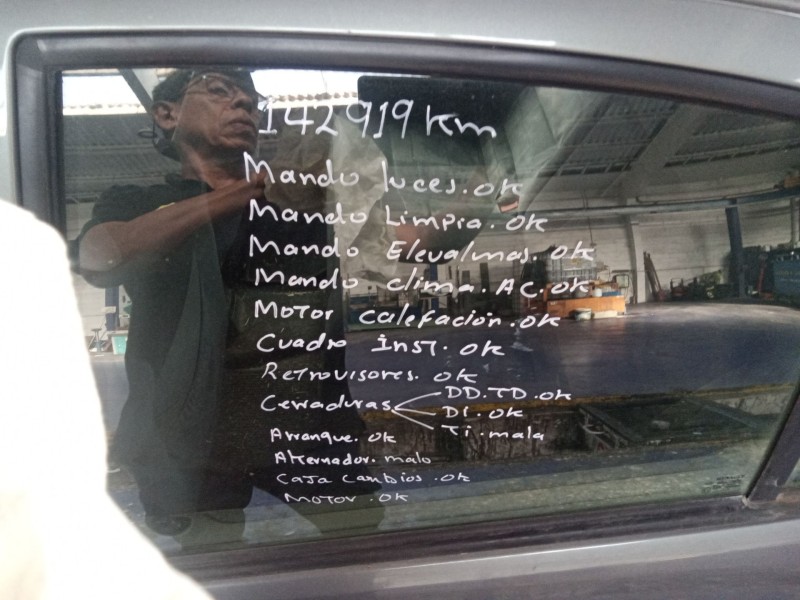 142919 km
Mando luces. ok
Mando Limpia. ok
Mando Elevalunas. ok
Mando clima. AC. ok
Motor calefacion. ok
Cuadro inst. ok
Retrovisores. ok
Cerraduras DD. TD. ok
DI. ok
Ti. mala
Arranque. ok
Alternador. malo
Caja Cambios. ok
Motor. ok